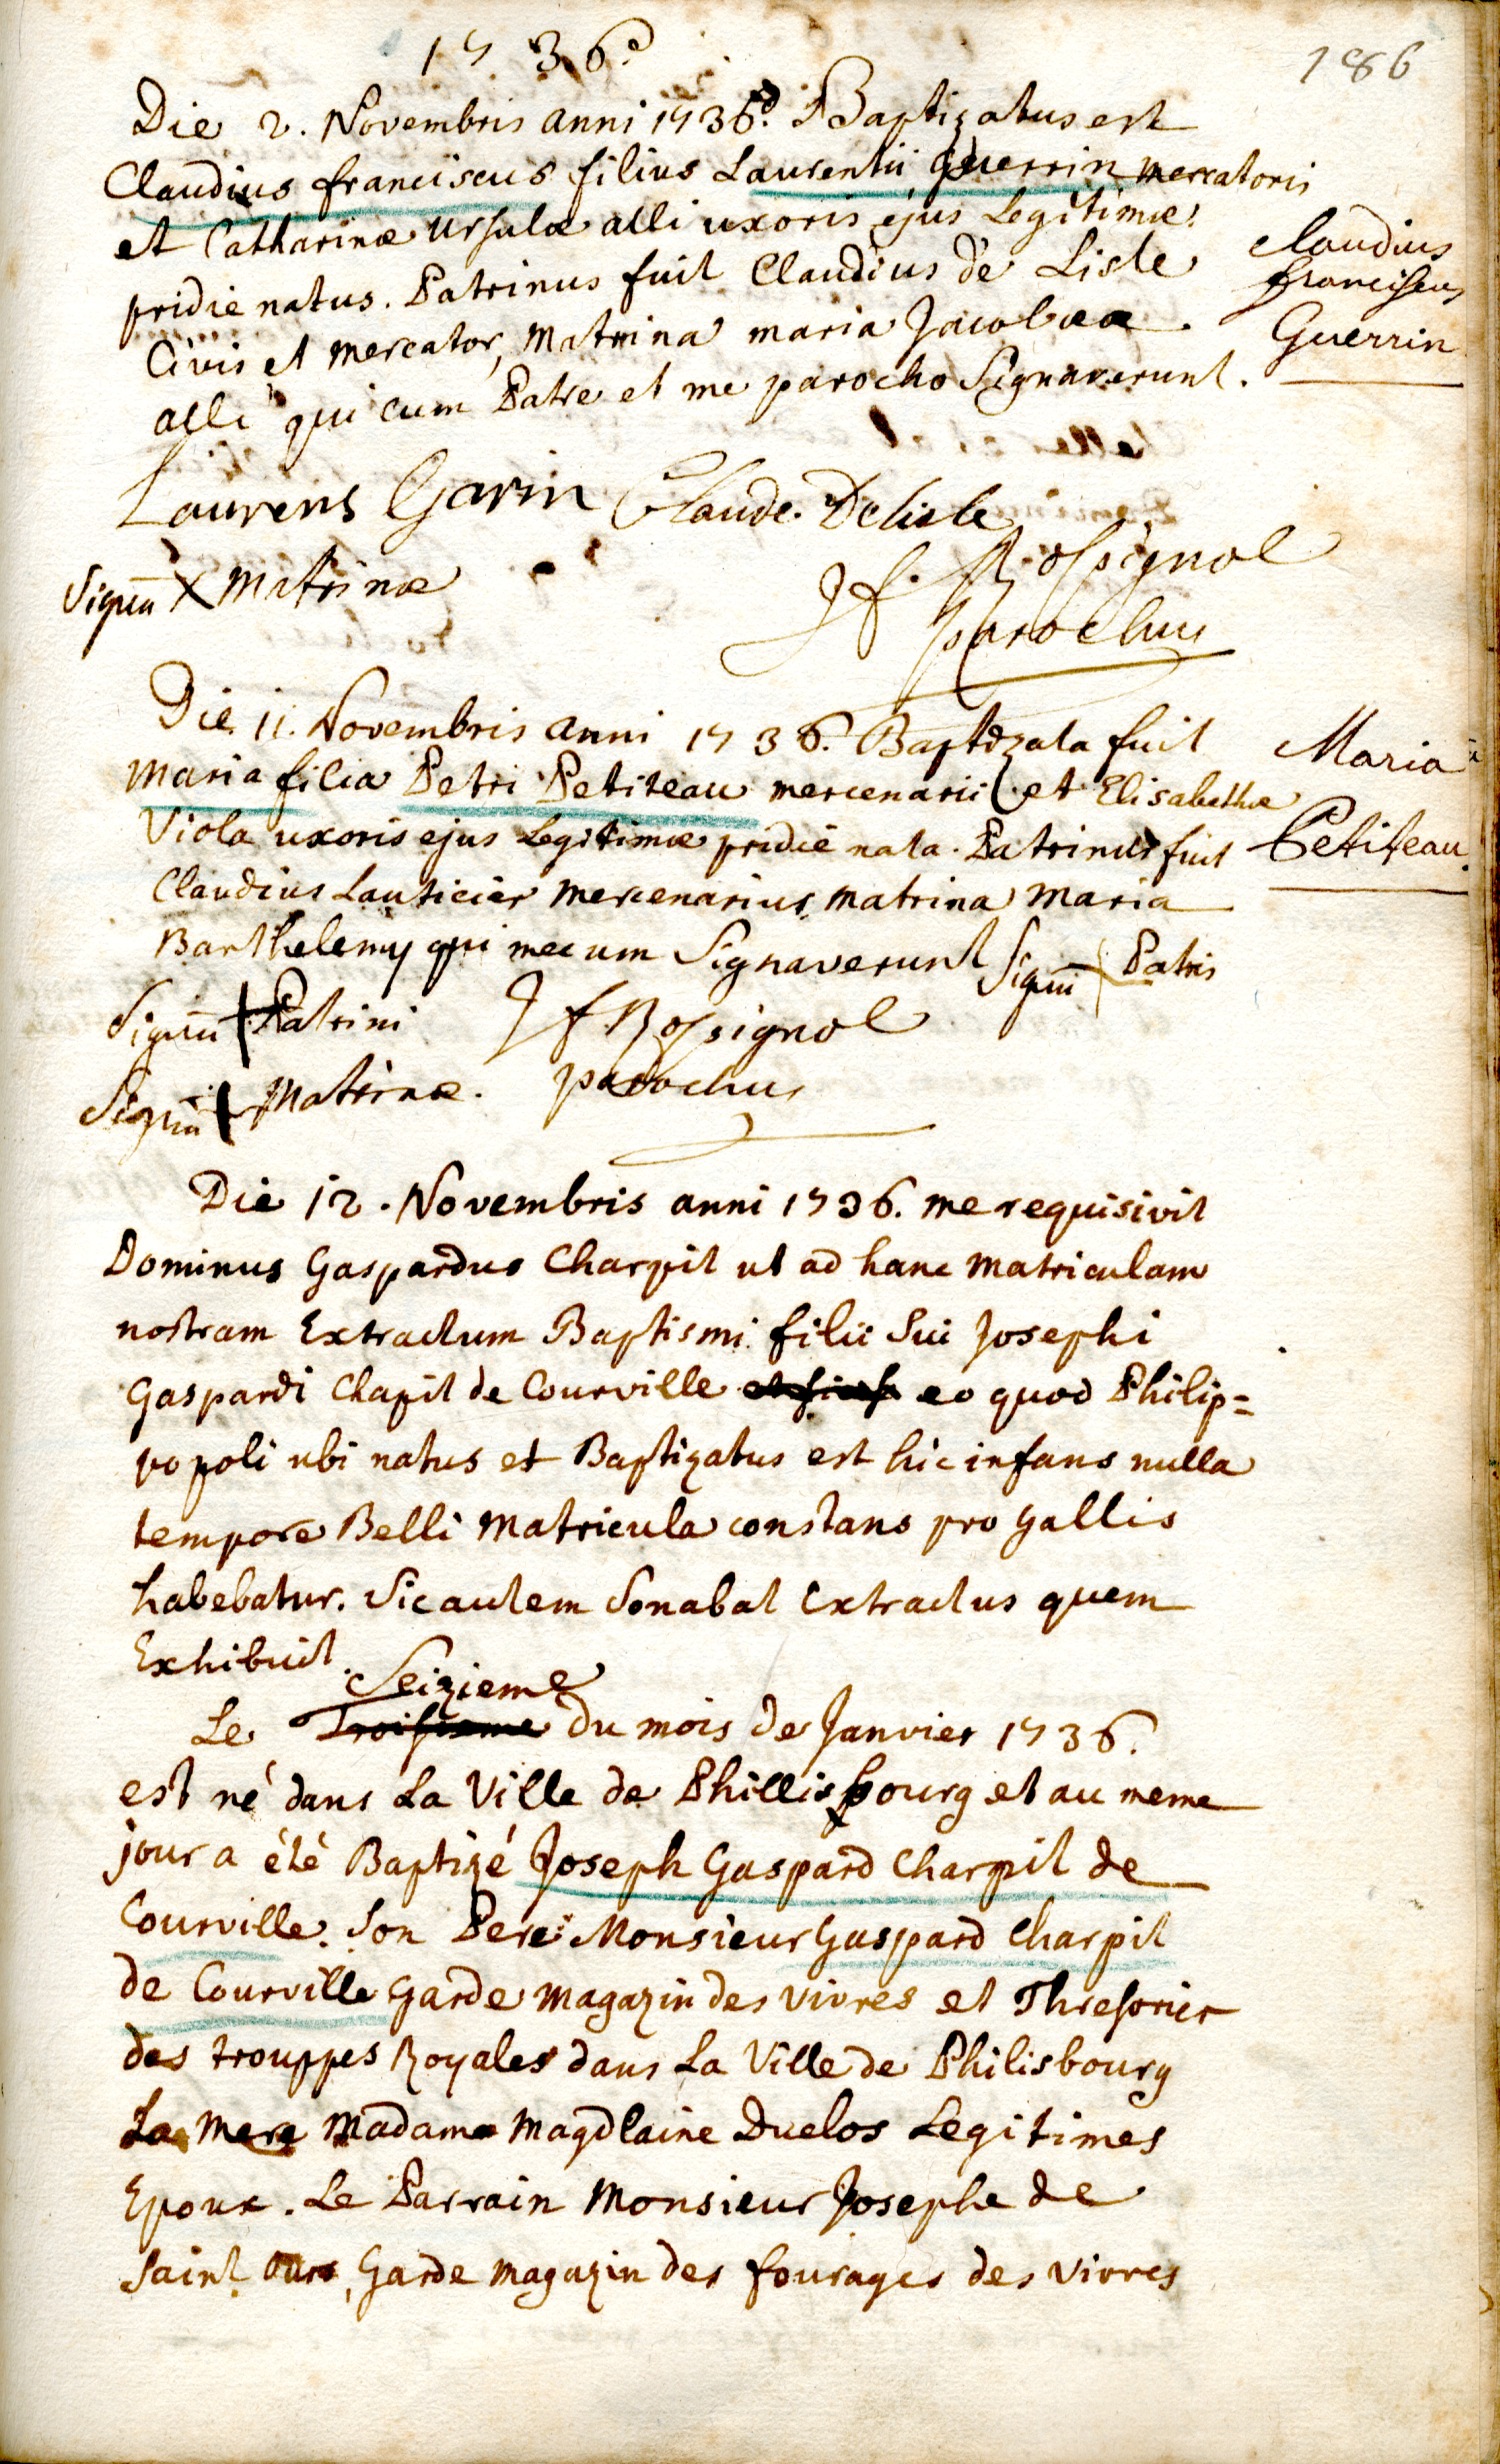 1736.
186
Die 2. Novembris anni 1736. Baptizatus est
Claudius franciscus filius Laurentii Guerrin mercatoris
et Catharinæ Ursulæ alli uxoris ejus Legitimæ
pridie natus. Patrinus fuit Claudius de Lisle
Civis et mercator, matrina maria Jacobæa
alli qui cum Patre et me parocho Signaverunt.
Claudius
franciscus
Guerrin
Laurens Garin Claude Delisle
Signu̅ X matrinæ
J f. Rossignol
parochus
Die 11. Novembris anni 1736. Baptizata fuit
maria filia Petri Petiteau mercenarii et Elisabethæ
Viola uxoris ejus Legitimæ pridie nata. Patrinus fuit
Claudius Lauticier mercenarius, matrina maria
Barthelemy qui mecum Signaverunt Signu̅ + Patris
Maria
Petiteau.
Signu̅ + Patrini
J f Rossignol
parochus
Signu̅ + matrinæ.
Die 12. Novembris anni 1736. me requisivit
Dominus Gaspardus Charpit ut ad hanc matriculam
nostram Extractum Baptismi filii Sui Josephi
Gaspardi Chapit de Courville eo quod Philip=
popoli ubi natus et Baptizatus est hic infans nulla
tempore Belli matricula constans pro Gallis
habebatur. Sic autem Sonabat Extractus quem
Exhibuit.
Seizieme
Le Troisieme du mois de Janvier 1736.
est né dans La Ville de Phillisbourg et au meme
jour a été Baptizé Joseph Gaspard Charpit de
Courville. Son Pere Monsieur Gaspard Charpit
de Courville Garde magazin des vivres et Thresorier
des trouppes Royales dans La Ville de Philisbourg
La mere Madame Magdlaine Duclos Legitimes
Epoux. Le Parrain Monsieur Josephe de
Saint Garde magazin des fourages des vivres